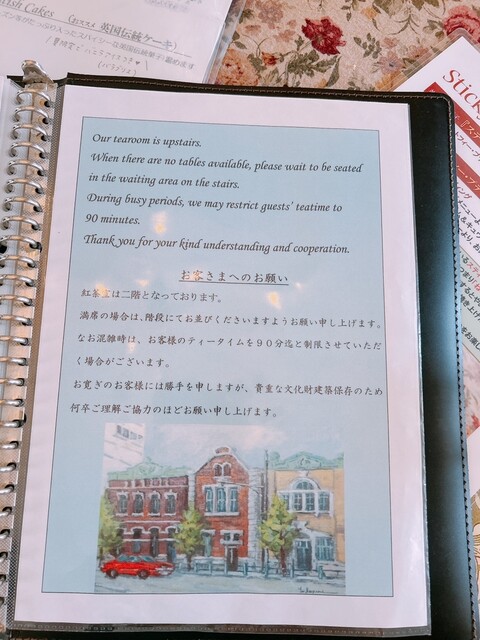 ish Cakes
英国伝統ケーキ)
Our tearoom is upstairs.
When there are no tables available, please wait to be seated
in the waiting area on the stairs.
During busy periods, we may restrict guests' teatime to
90 minutes.
Thank you for your kind understanding and cooperation.
お客さまへのお願い
紅茶室は二階となっております。
満席の場合は、階段にてお並びくださいますようお願い申し上げます。
なお混雑時は、お客様のティータイムを90分迄と制限させていただ
く場合がございます。
お寛ぎのお客様には勝手を申しますが、貴重な文化財建築保存のため
何卒ご理解ご協力のほどお願い申し上げます。
Stick